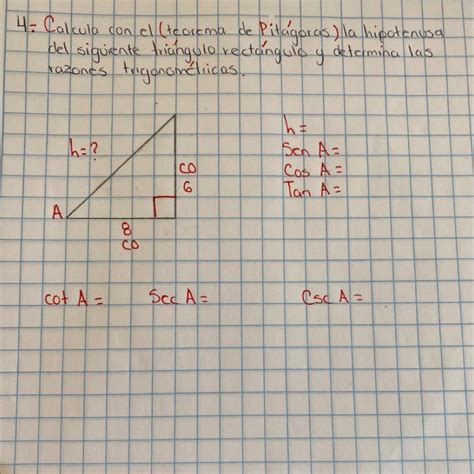 4.- Calcula con el (teorema de Pitágoras) la hipotenusa
del siguiente triángulo rectángulo y determina las
razones trigonométricas.
h=?
CO
6
A
8
CO
h=
Sen A=
Cos A=
Tan A=
cot A= Sec A= Csc A=